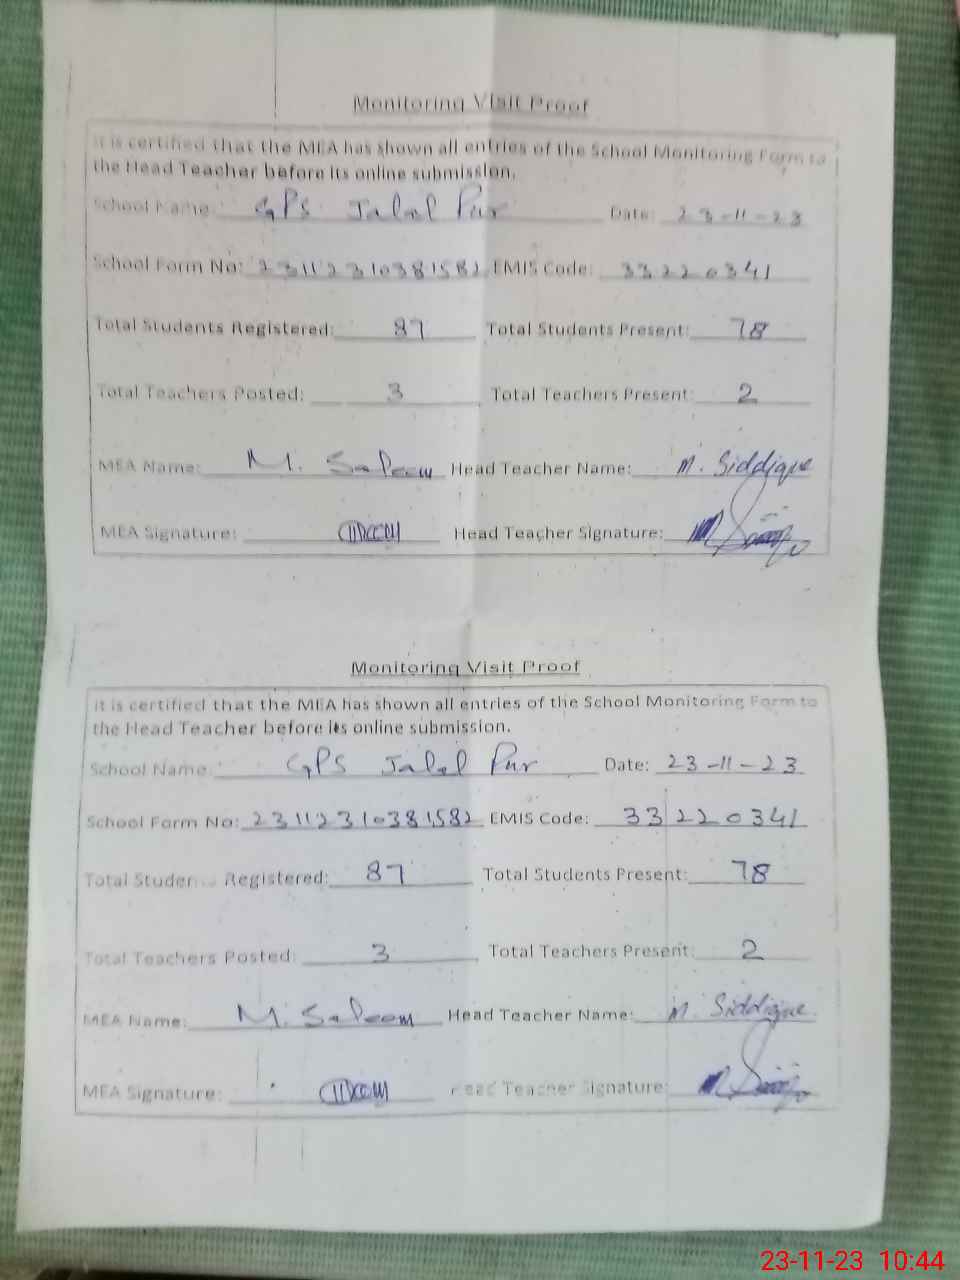 Monitoring Visit Proof
It is certified that the MEA has shown all entries of the School Monitoring Form to
the Head Teacher before its online submission.
School Name: GPS Jalal Pur Date: 23-11-23
School Form No: 23112310381582 EMIS Code: 33220341
Total Students Registered: 87 Total Students Present: 78
Total Teachers Posted: 3 Total Teachers Present: 2
MEA Name: M. Saleem Head Teacher Name: M. Siddique
MEA Signature: Head Teacher Signature:
Monitoring Visit Proof
It is certified that the MEA has shown all entries of the School Monitoring Form to
the Head Teacher before its online submission.
School Name: GPS Jalal Pur Date: 23-11-23
School Form No: 23112310381582 EMIS Code: 33220341
Total Students Registered: 87 Total Students Present: 78
Total Teachers Posted: 3 Total Teachers Present: 2
MEA Name: M. Saleem Head Teacher Name: M. Siddique
MEA Signature: Head Teacher Signature:
23-11-23 10:44